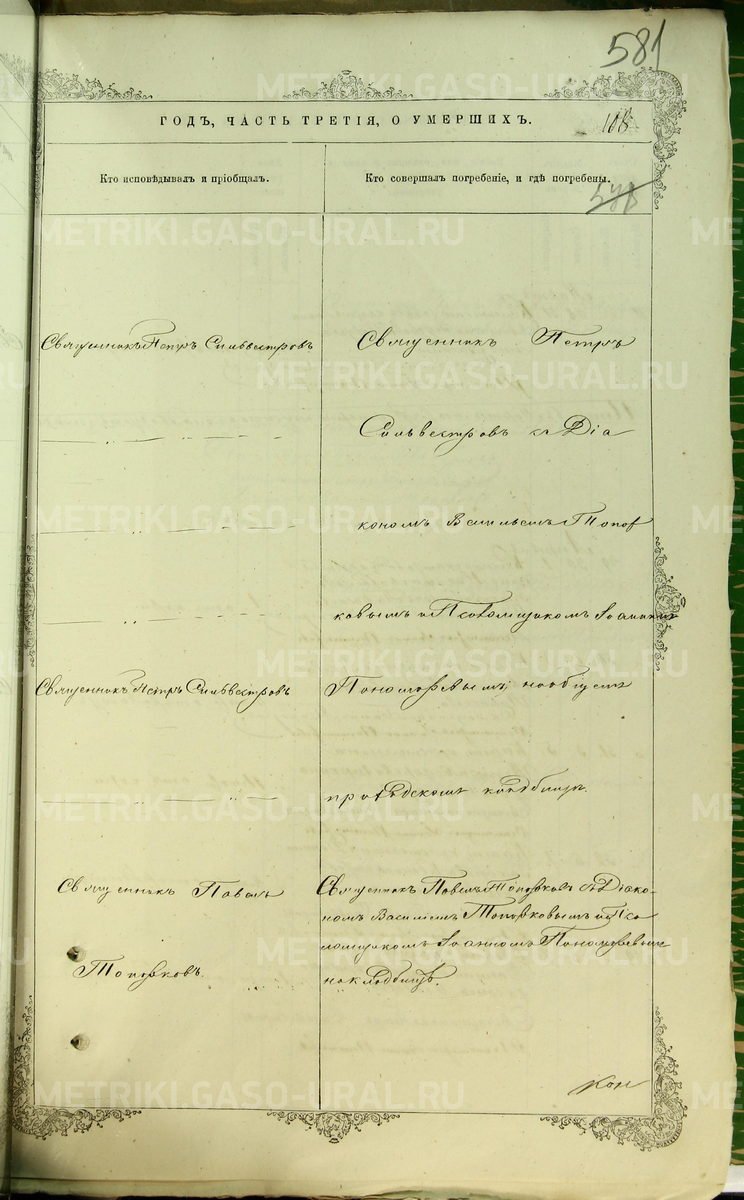 581
ГОДЪ, ЧАСТЬ ТРЕТІЯ, О УМЕРШИХЪ.
108
Кто исповѣдывалъ и пріобщалъ.
Кто совершалъ погребеніе, и гдѣ погребены.
Священникъ Петръ Сильвестровъ
Священникъ Петръ
Сильвестровъ съ Діа
кономъ Васильемъ Топор
ковымъ и Псаломщикомъ Іоанномъ
Священникъ Петръ Сильвестровъ
Пономаревымъ, на общемъ
приходскомъ кладбищѣ.
Священникъ Павелъ
Топорковъ.
Священникъ Павелъ Топорковъ съ Діако-
номъ Василіемъ Топорковымъ и Пса
ломщикомъ Іоанномъ Пономаревымъ
на кладбищѣ.
METRIKI.GASO-URAL.RU